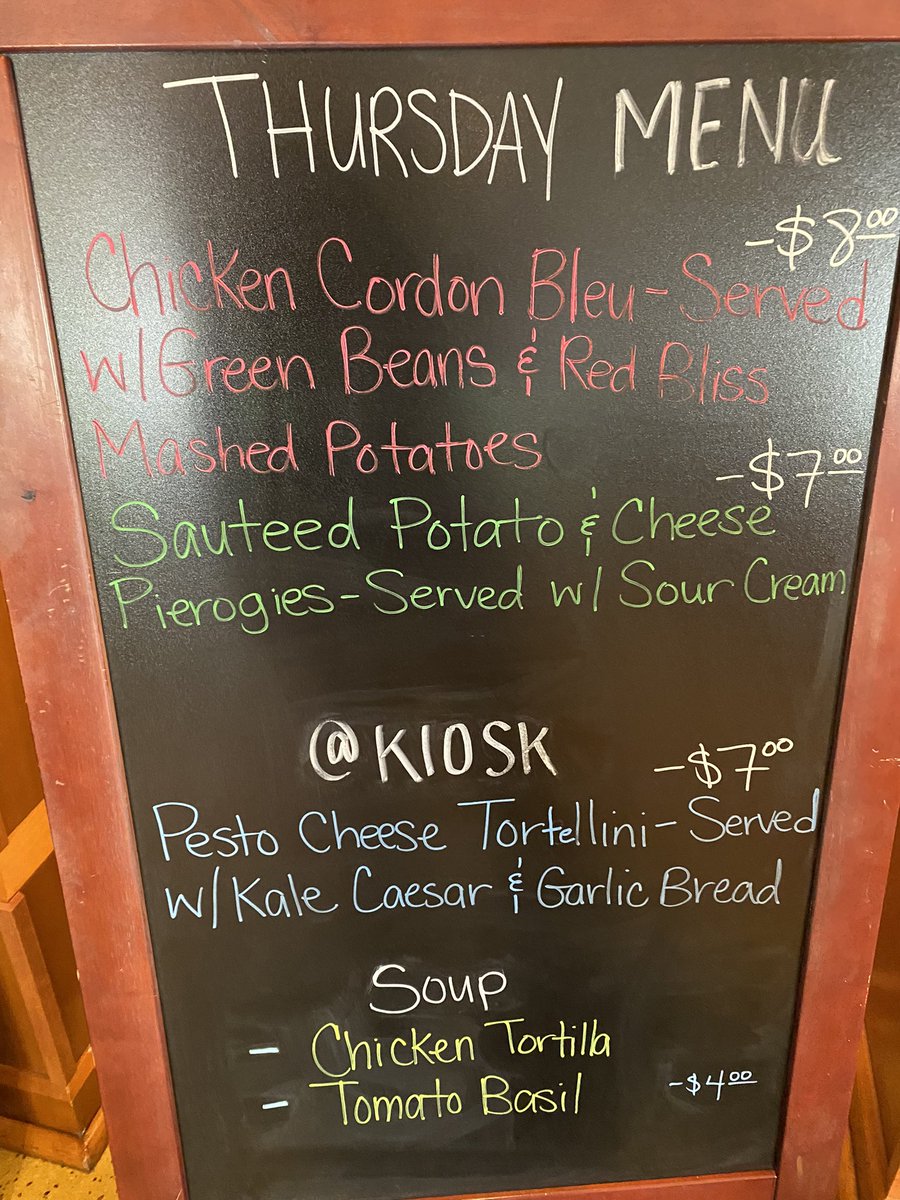 THURSDAY MENU
-$8.00
Chicken Cordon Bleu-Served
w/Green Beans & Red Bliss
Mashed Potatoes
-$7.00
Sauteed Potato & Cheese
Pierogies-Served w/ Sour Cream
@KIOSK
-$7.00
Pesto Cheese Tortellini-Served
w/Kale Caesar & Garlic Bread
Soup
- Chicken Tortilla
- Tomato Basil -$4.00